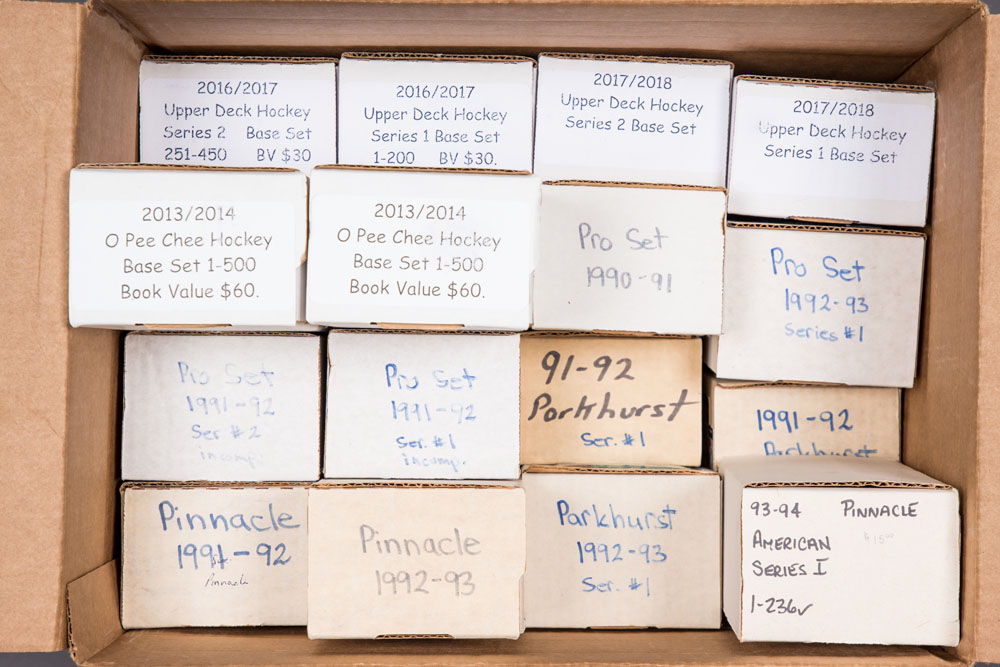 2016/2017
Upper Deck Hockey
Series 2 Base Set
251-450 BV $30
2016/2017
Upper Deck Hockey
Series 1 Base Set
1-200 BV $30.
2017/2018
Upper Deck Hockey
Series 2 Base Set
2017/2018
Upper Deck Hockey
Series 1 Base Set
2013/2014
O Pee Chee Hockey
Base Set 1-500
Book Value $60.
2013/2014
O Pee Chee Hockey
Base Set 1-500
Book Value $60.
Pro Set
1990-91
Pro Set
1992-93
Series #1
Pro Set
1991-92
Ser #2
incomp.
Pro Set
1991-92
Ser. #1
incomp.
91-92
Parkhurst
Ser. #1
1991-92
Parkhurst
Pinnacle
1991-92
Pinnacle
Pinnacle
1992-93
Parkhurst
1992-93
Ser. #1
93-94 PINNACLE
$15.00
AMERICAN
SERIES I
1-236